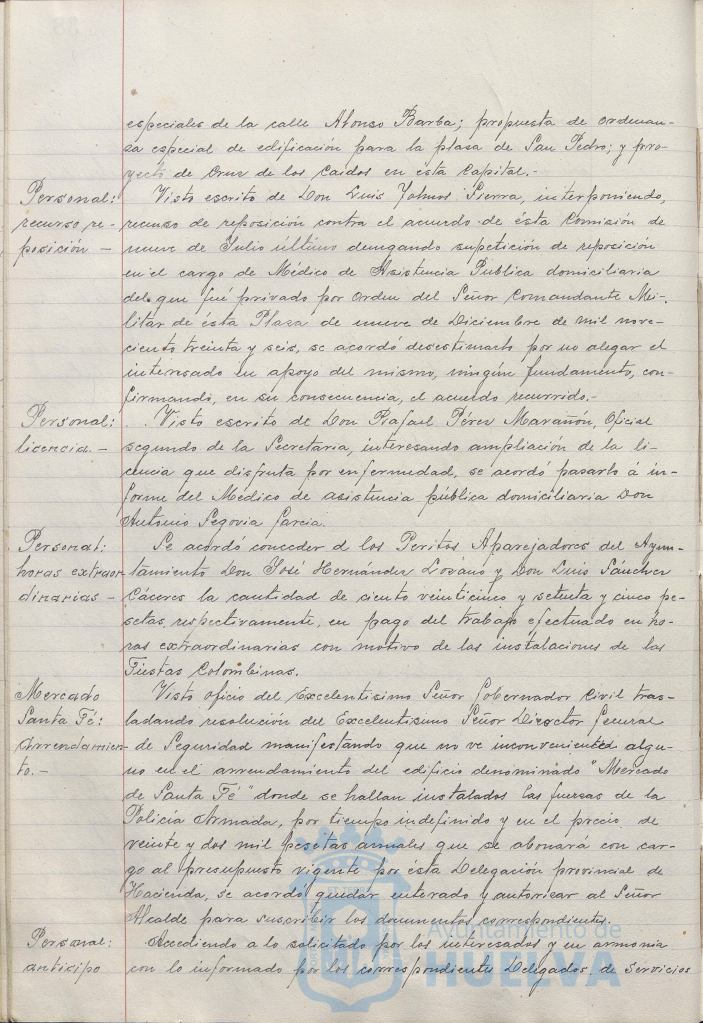 especiales de la calle Alonso Barba; propuesta de ordenan-
za especial de edificación para la plaza de San Pedro; y pro-
yecto de Cruz de los Caidos en esta Capital.-
Personal: Visto escrito de Don Luis Yolmos Sierra, interponiendo,
recurso re- recurso de reposición contra el acuerdo de ésta Comisión de
posición - nueve de Julio último denegando supetición de reposición
en el cargo de Médico de Asistencia Pública domiciliaria
del que fué privado por orden del Señor Comandante Mi-
litar de ésta Plaza de nueve de Diciembre de mil nove-
ciento treinta y seis, se acordó desestimarlo por no alegar el
interesado en apoyo del mismo, ningún fundamento, con-
firmando, en su consecuencia, el acuerdo recurrido.-
Personal: Visto escrito de Don Rafael Pérez Marañón, Oficial
licencia.- segundo de la Secretaria, interesando ampliación de la li-
cencia que disfruta por enfermedad, se acordó pasarlo á in-
forme del Médico de asistencia pública domiciliaria Don
Antonio Segovia Garcia.
Personal: Se acordó conceder á los Peritos Aparejadores del Ayun-
horas extraor- tamiento Don José Hernández Lozano y Don Luis Sánchez
dinarias - Cáceres la cantidad de ciento veinticinco y setenta y cinco pe-
setas, respectivamente, en pago del trabajo efectuado en ho-
ras extraordinarias con motivo de las instalaciones de las
Fiestas Colombinas.
Mercado Visto oficio del Excelentisimo Señor Gobernador Civil tras-
Santa Fé: ladando resolución del Excelentisimo Señor Director General
Arrendamien- de Seguridad manifestando que no ve inconveniente algu-
to.- no en el arrendamiento del edificio denominado "Mercado
de Santa Fé" donde se hallan instalados las fuerzas de la
Policía Armada, por tiempo indefinido y en el precio de
veinte y dos mil pesetas anuales que se abonará con car-
go al presupuesto vigente por ésta Delegación provincial de
Hacienda, se acordó quedar enterado y autorizar al Señor
Alcalde para suscribir los documentos correspondientes.
Personal: Accediendo a lo solicitado por los interesados y en armonia
anticipo con lo informado por los correspondientes Delegados, de Servicios
Ayuntamiento de
HUELVA